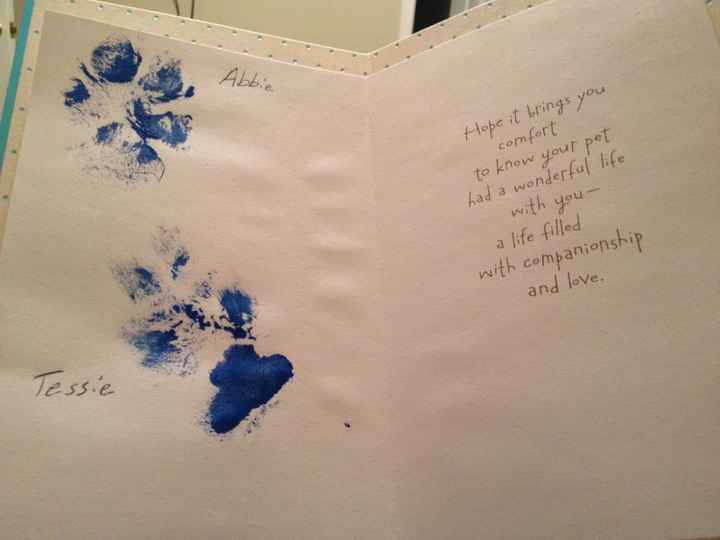 Abbie
Tessie
Hope it brings you
comfort
to know your pet
had a wonderful life
with you—
a life filled
with companionship
and love.